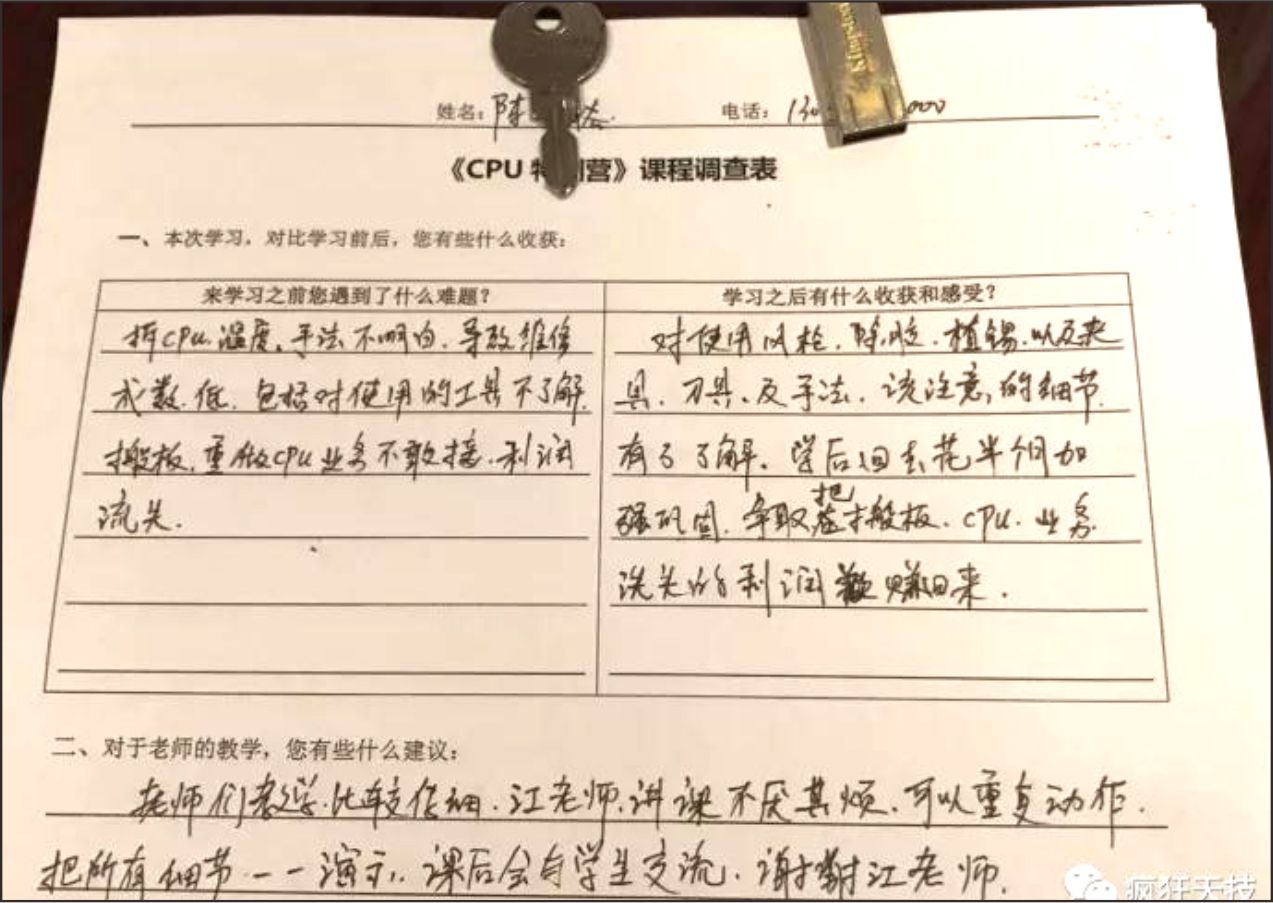 Kingston
姓名:陈 电话:130 000
《CPU 特训营》课程调查表
一、本次学习,对比学习前后,您有些什么收获:
来学习之前您遇到了什么难题?
拆CPU.温度、手法不明白.导致维修
式数.低.包括对使用的工具不了解.
搬板.重做CPU业务不敢接.利润
流失.
学习之后有什么收获和感受?
对使用风枪.除胶.植锡.以及夹
具.刀具、及手法.该注意的细节.
有了了解.学后回去花半个月加
强巩固.争取把搬板.CPU.业务
流失的利润赚回来.
二、对于老师的教学,您有些什么建议:
老师们教学比较仔细.江老师.讲课不厌其烦.可以重复动作.
把所有细节一一演示.课后会与学生交流.谢谢江老师.
疯狂天技